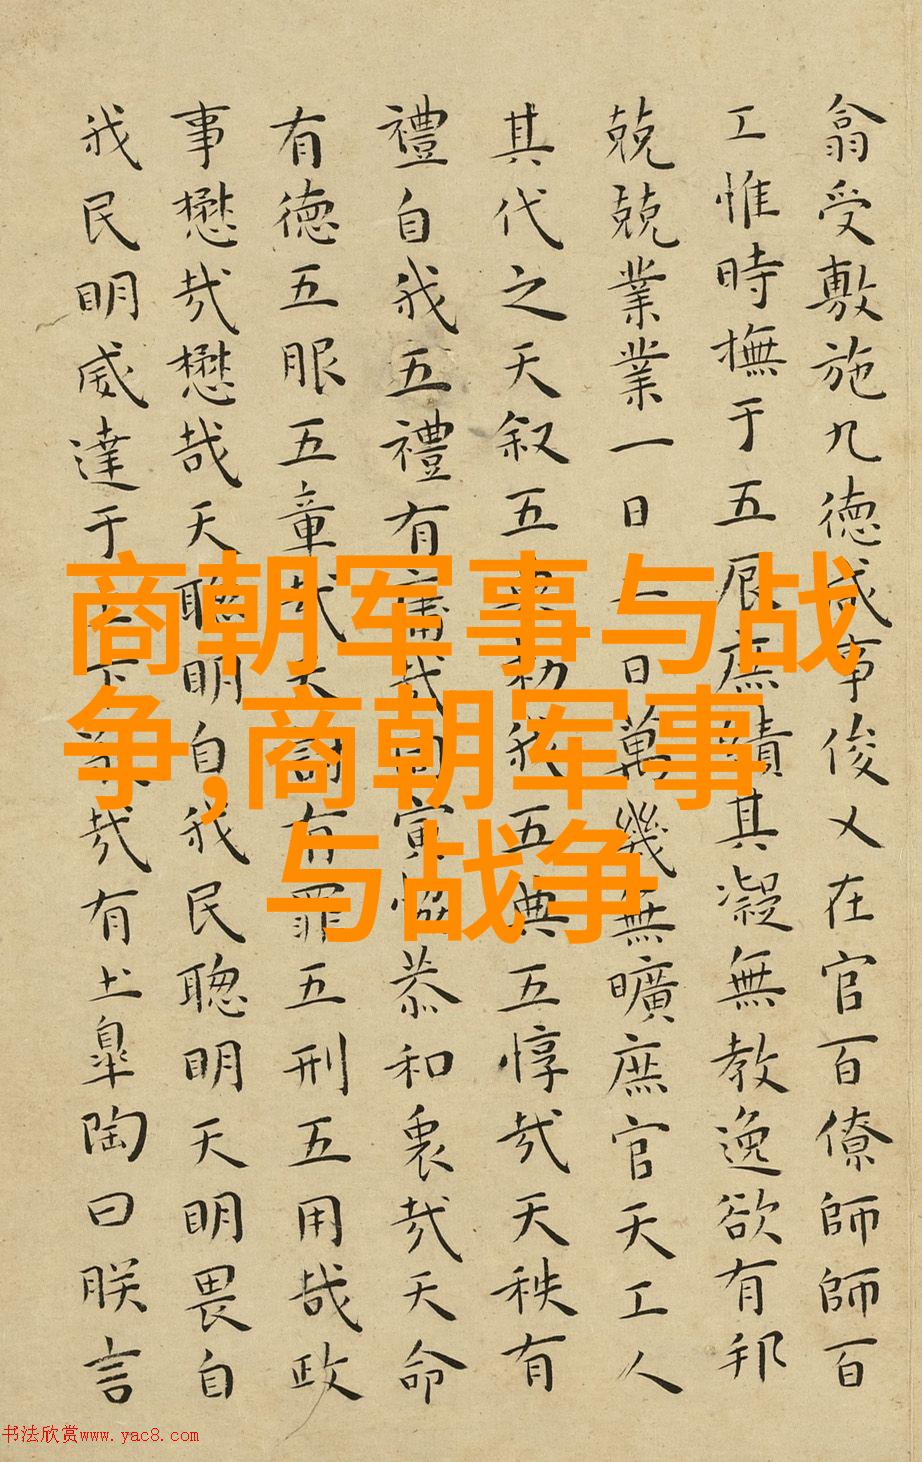 翕受敷施九徳咸事俊乂在官百僚師師百
工惟時撫于五辰庶績其凝無教逸欲有邦
兢兢業業一日二日萬幾無曠庶官天工人
其代之天叙五典勑我五典五惇哉天秩有
禮自我五禮有庸哉同寅協恭和衷哉天命
有徳五服五章哉天討有罪五刑五用哉政
事懋哉懋哉天聰明自我民聰明天明畏自
我民明威達于下哉有土臯陶曰朕言
商朝军事与战
争,商朝军事
与战争
书法欣赏www.yac8.com